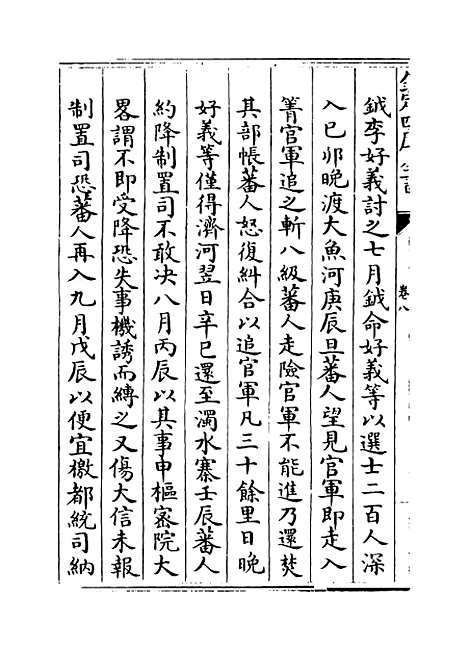 欽定四庫全書
卷八
鉞李好義討之七月鉞命好義等以選士二百人深
入己夘晚渡大魚河庚辰旦蕃人望見官軍即走入
箐官軍追之斬八級蕃人走險官軍不能進乃還焚
其部帳蕃人怒復糾合以追官軍凡三十餘里日晚
好義等僅得濟河翌日辛巳還至濁水寨壬辰蕃人
約降制置司不敢决八月丙辰以其事申樞宻院大
畧謂不即受降恐失事機誘而縛之又傷大信未報
制置司恐蕃人再入九月戊辰以便宜檄都統司納